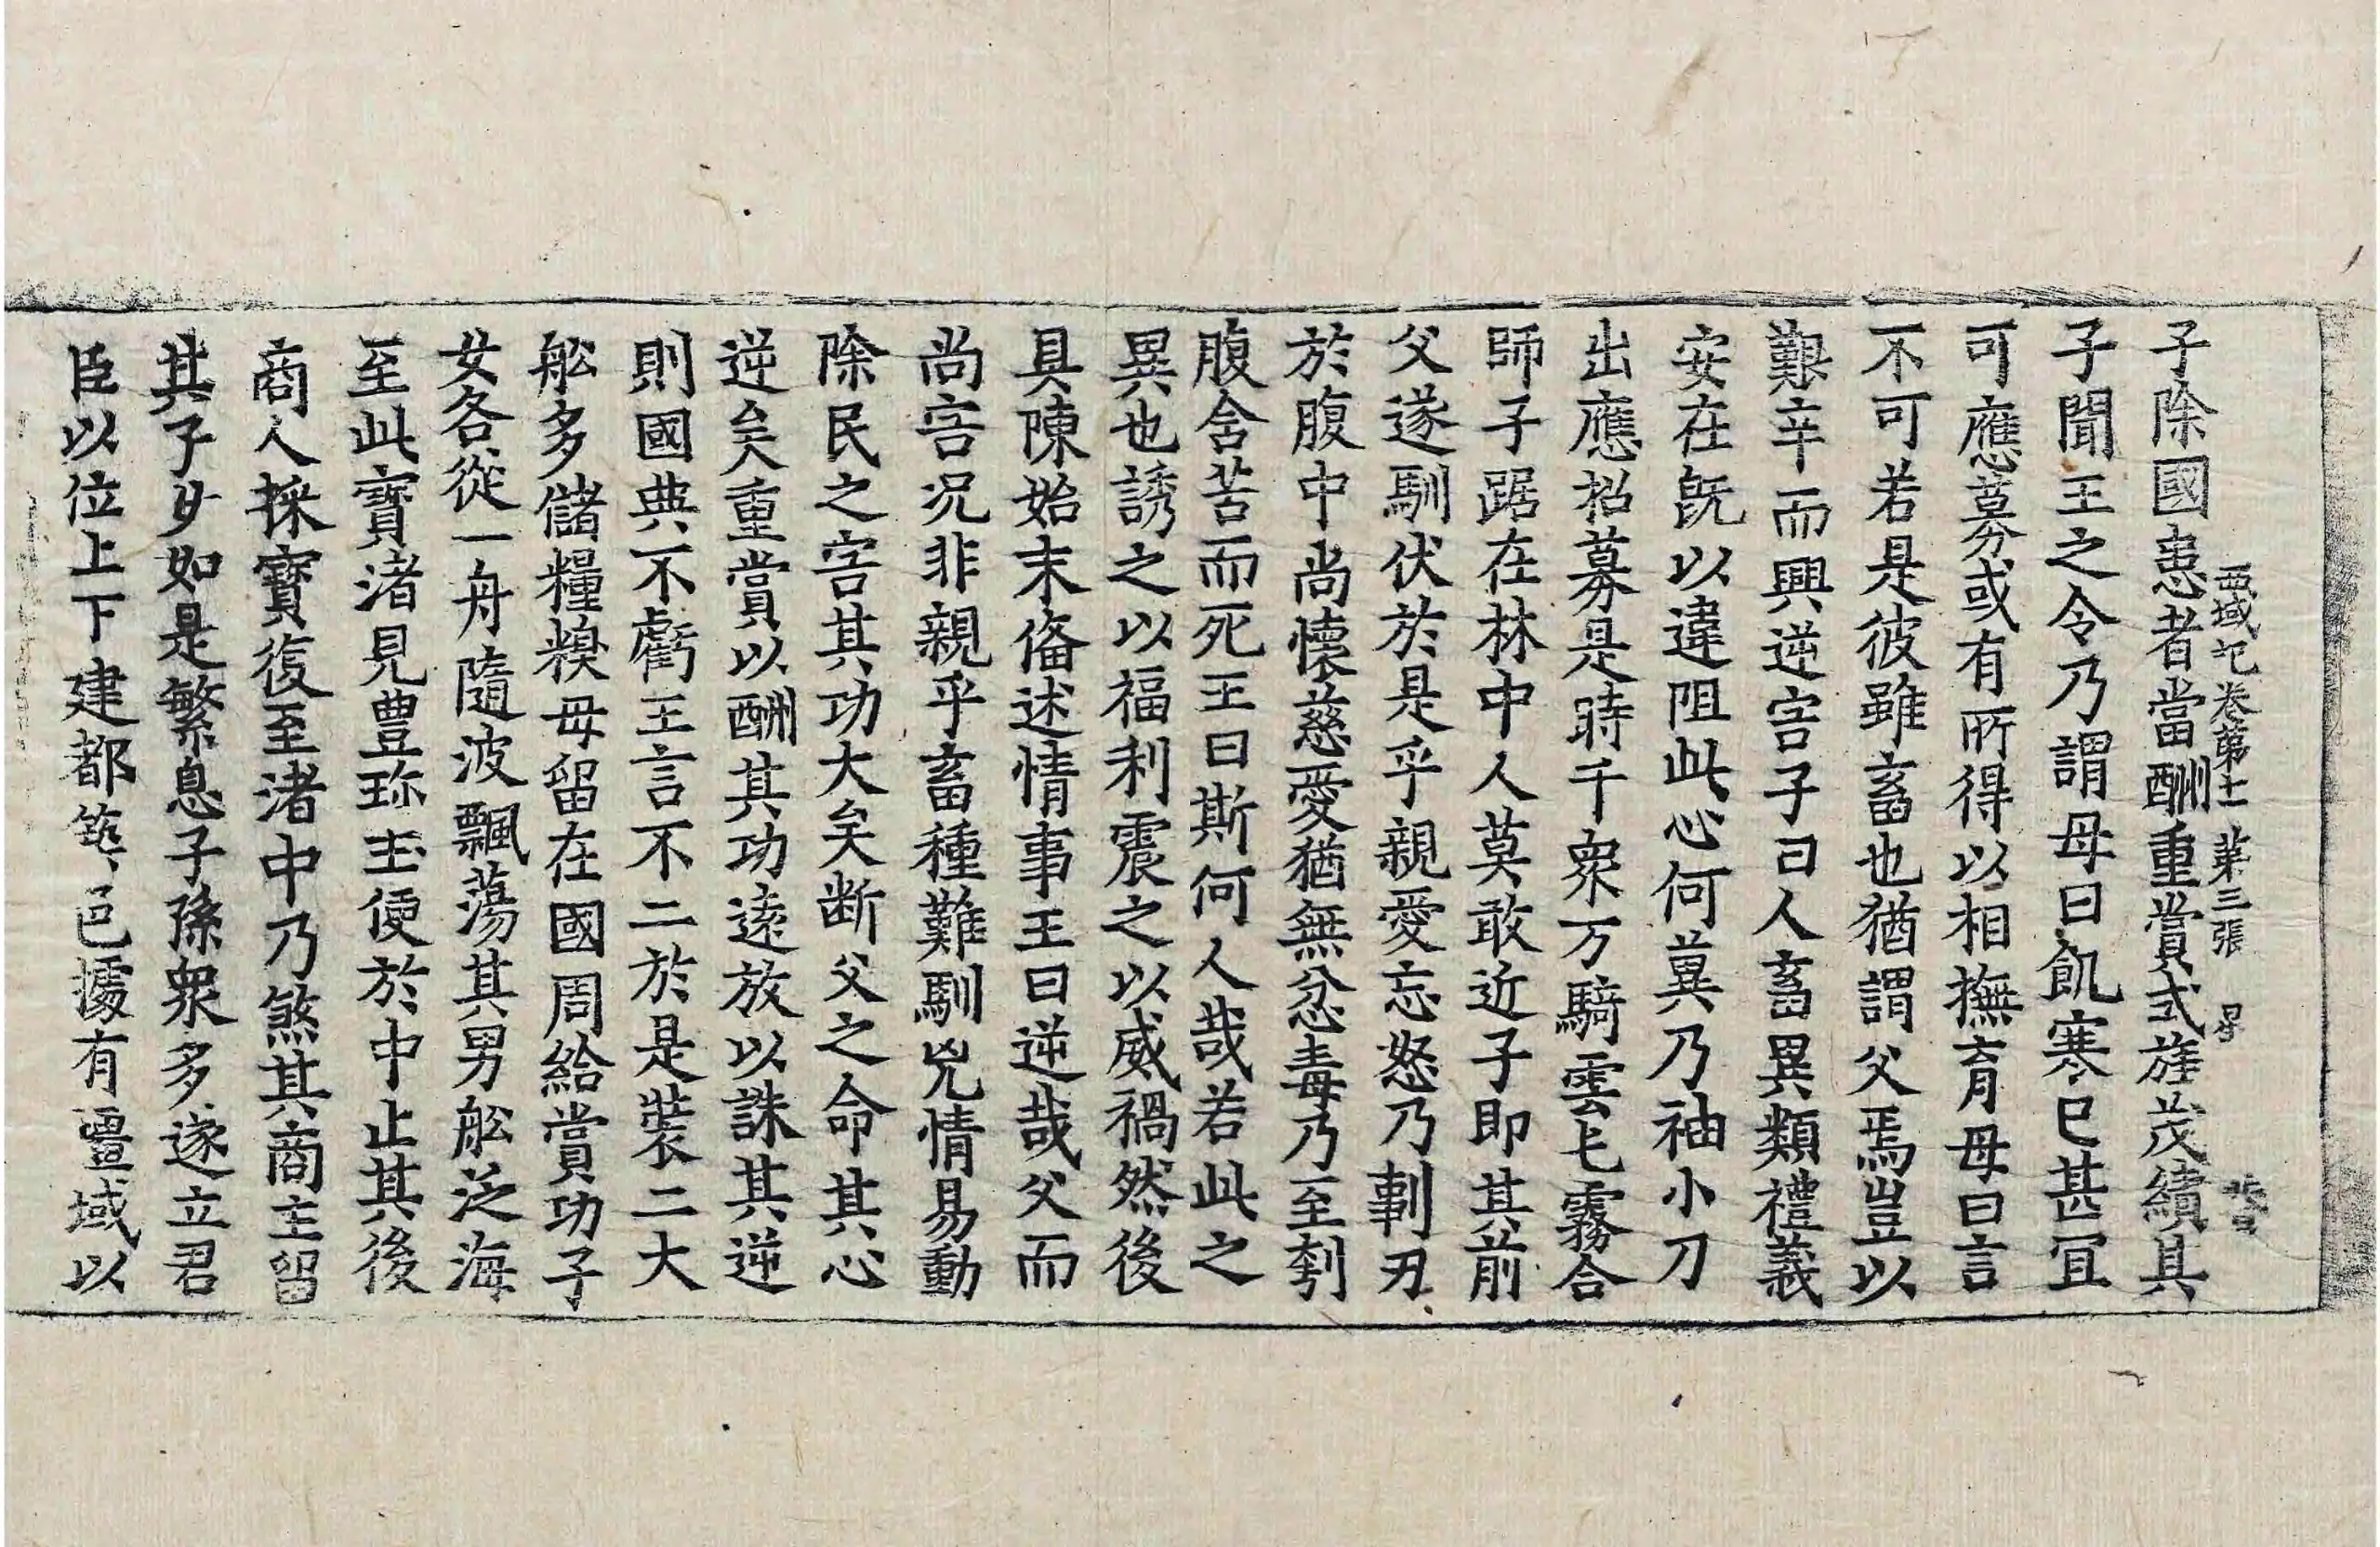 子除國患者當酬重賞式旌茂績其
西域記卷第十一 第三張 星
子聞王之令乃謂母曰飢寒已甚冝
可應募或有所得以相撫育母曰言
不可若是彼雖畜也猶謂父焉豈以
艱辛而興逆害子曰人畜異類禮義
安在旣以違阻此心何冀乃袖小刀
出應招募是時千衆万騎雲屯霧合
師子踞在林中人莫敢近子即其前
父遂馴伏於是乎親愛忘怒乃剚刃
於腹中尚懷慈愛猶無忿毒乃至刳
腹含苦而死王曰斯何人哉若此之
異也誘之以福利震之以威禍然後
具陳始末俻述情事王曰逆哉父而
尚害况非親乎畜種難馴兇情易動
除民之害其功大矣断父之命其心
逆矣重賞以酬其功逺放以誅其逆
則國典不虧王言不二於是裝二大
舩多儲糧糗母留在國周給賞功子
女各從一舟隨波飄蕩其男舩泛海
至此寶渚見豊珎玉便於中止其後
商人採寶復至渚中乃煞其商主留
其子女如是繁息子孫衆多遂立君
臣以位上下建都築邑據有疆域以